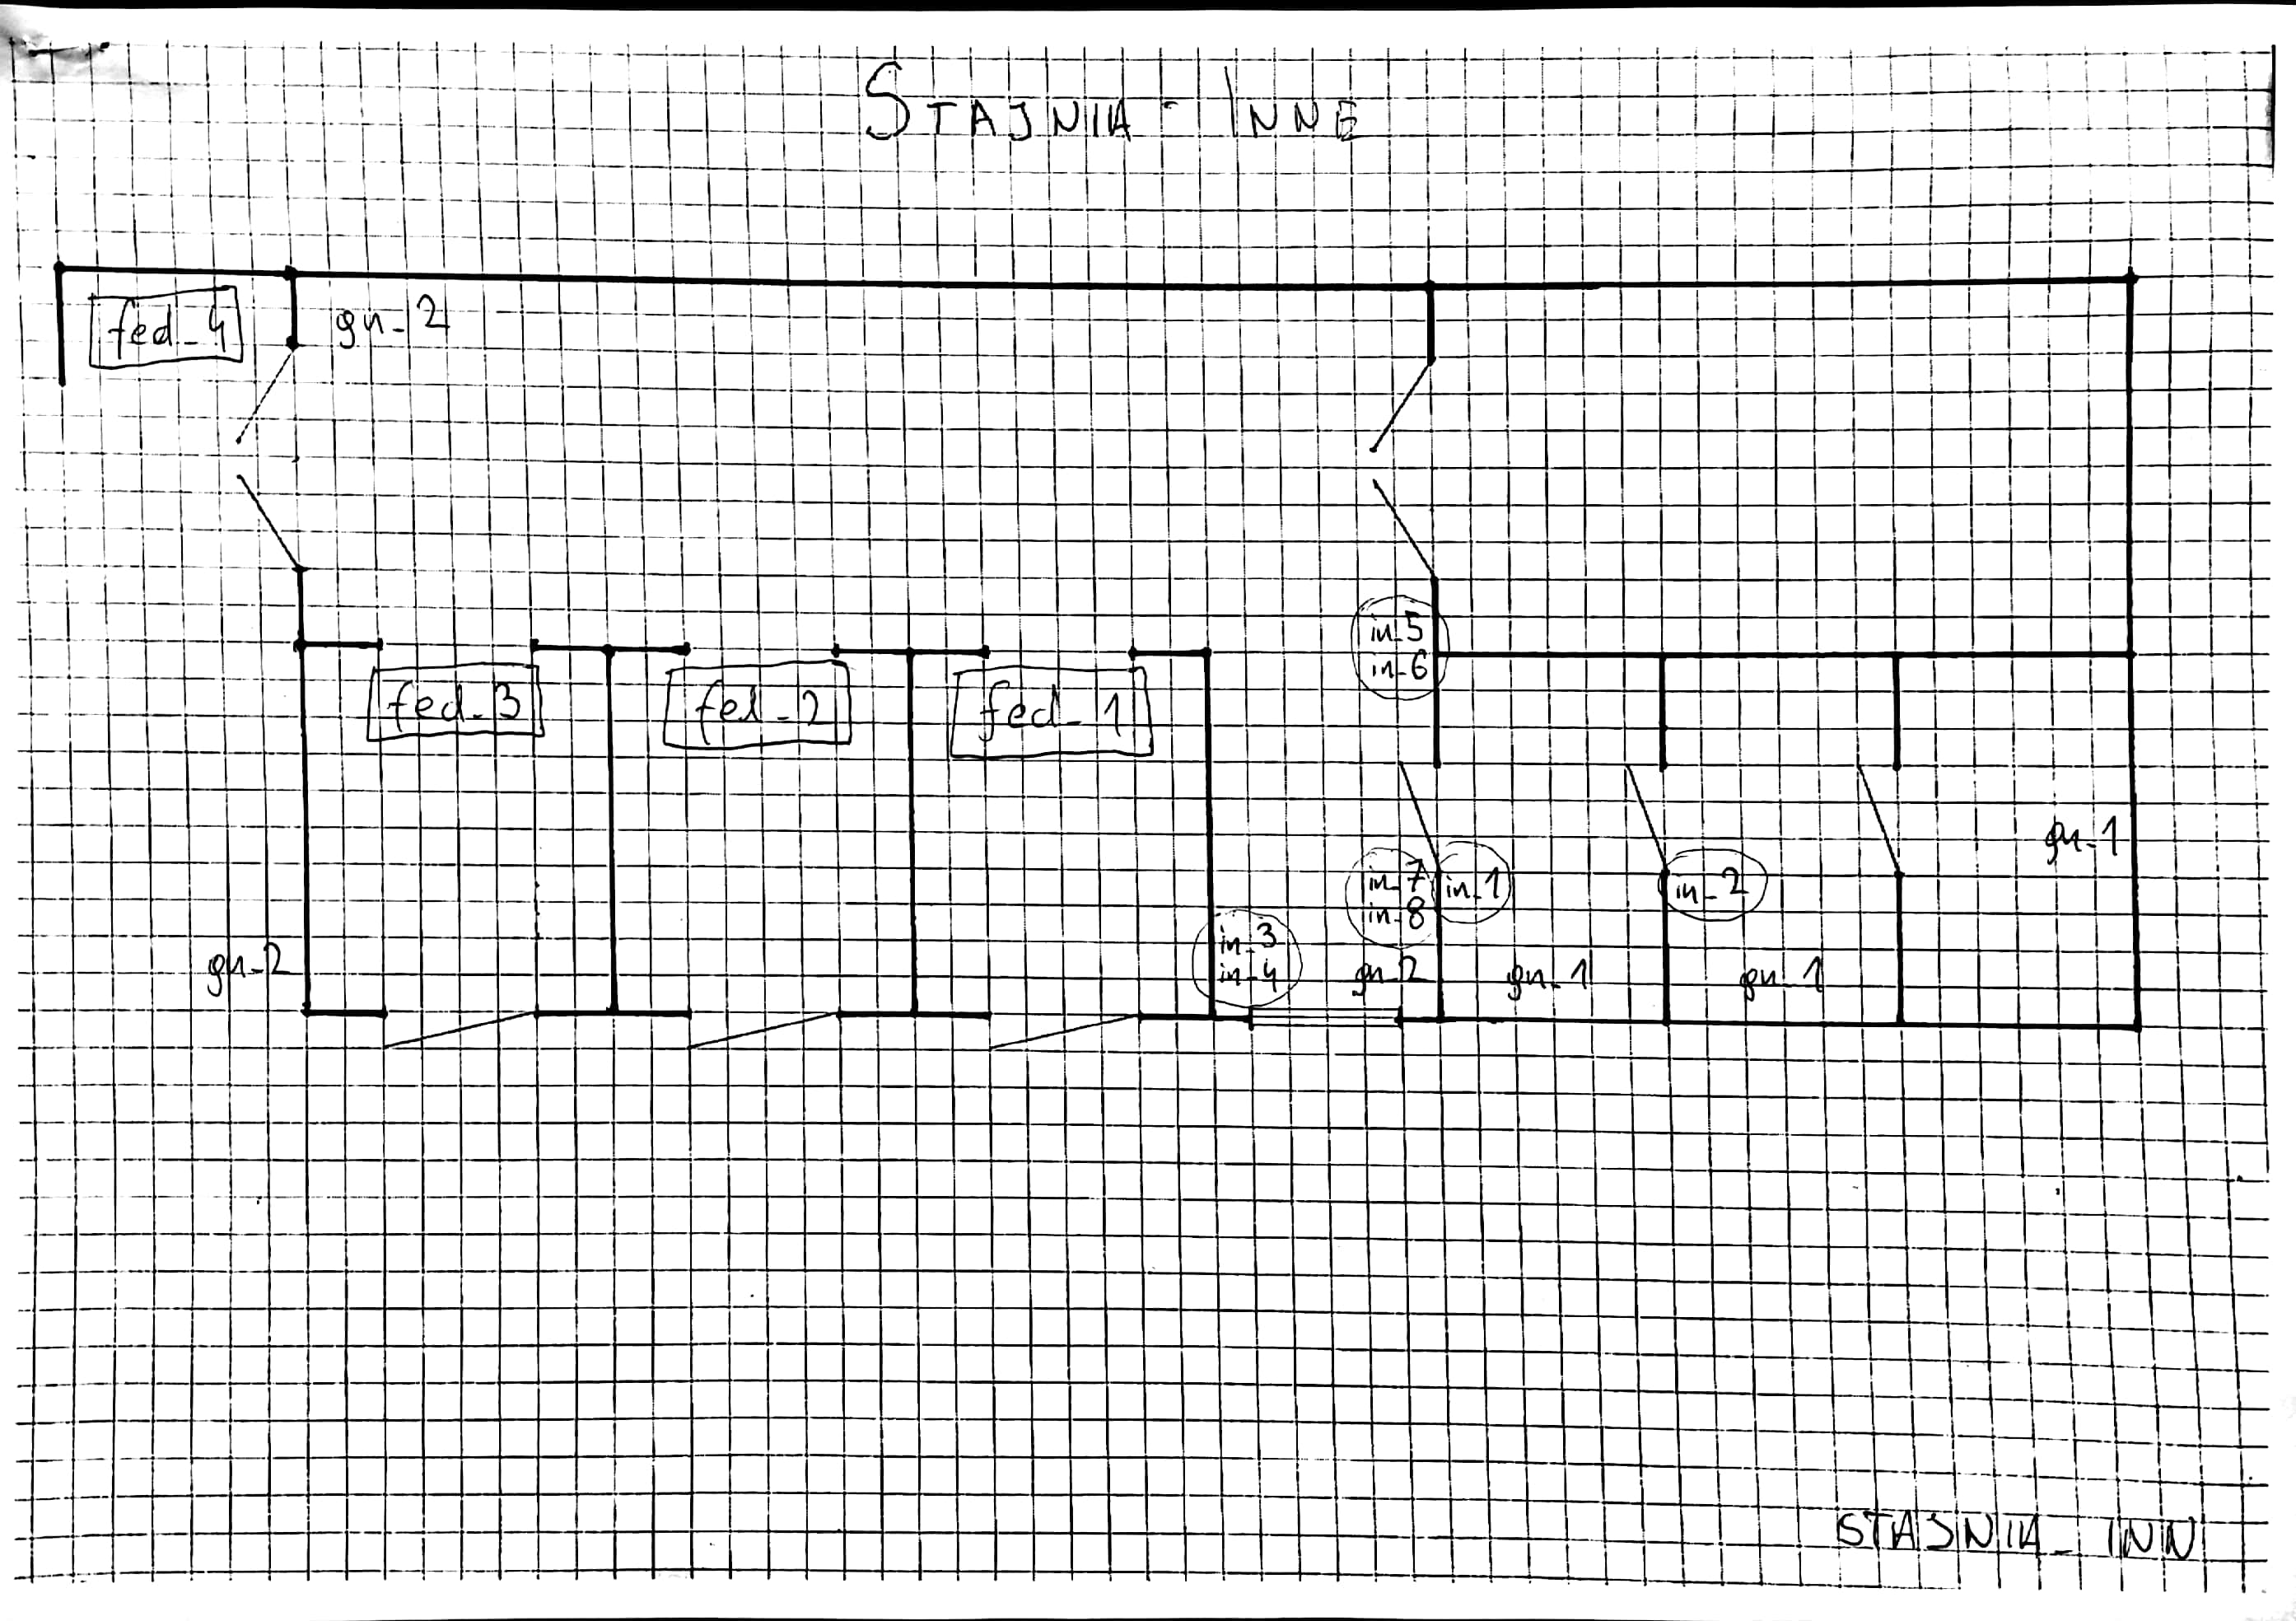 STAJNIA - INNE
fed_4
gn_2
in_5
in_6
fed_3
fed_2
fed_1
gn_1
in_7
in_8
in_1
in_2
in_3
in_4
gn_2
gn_2
gn_1
gn_1
STAJNIA_INN